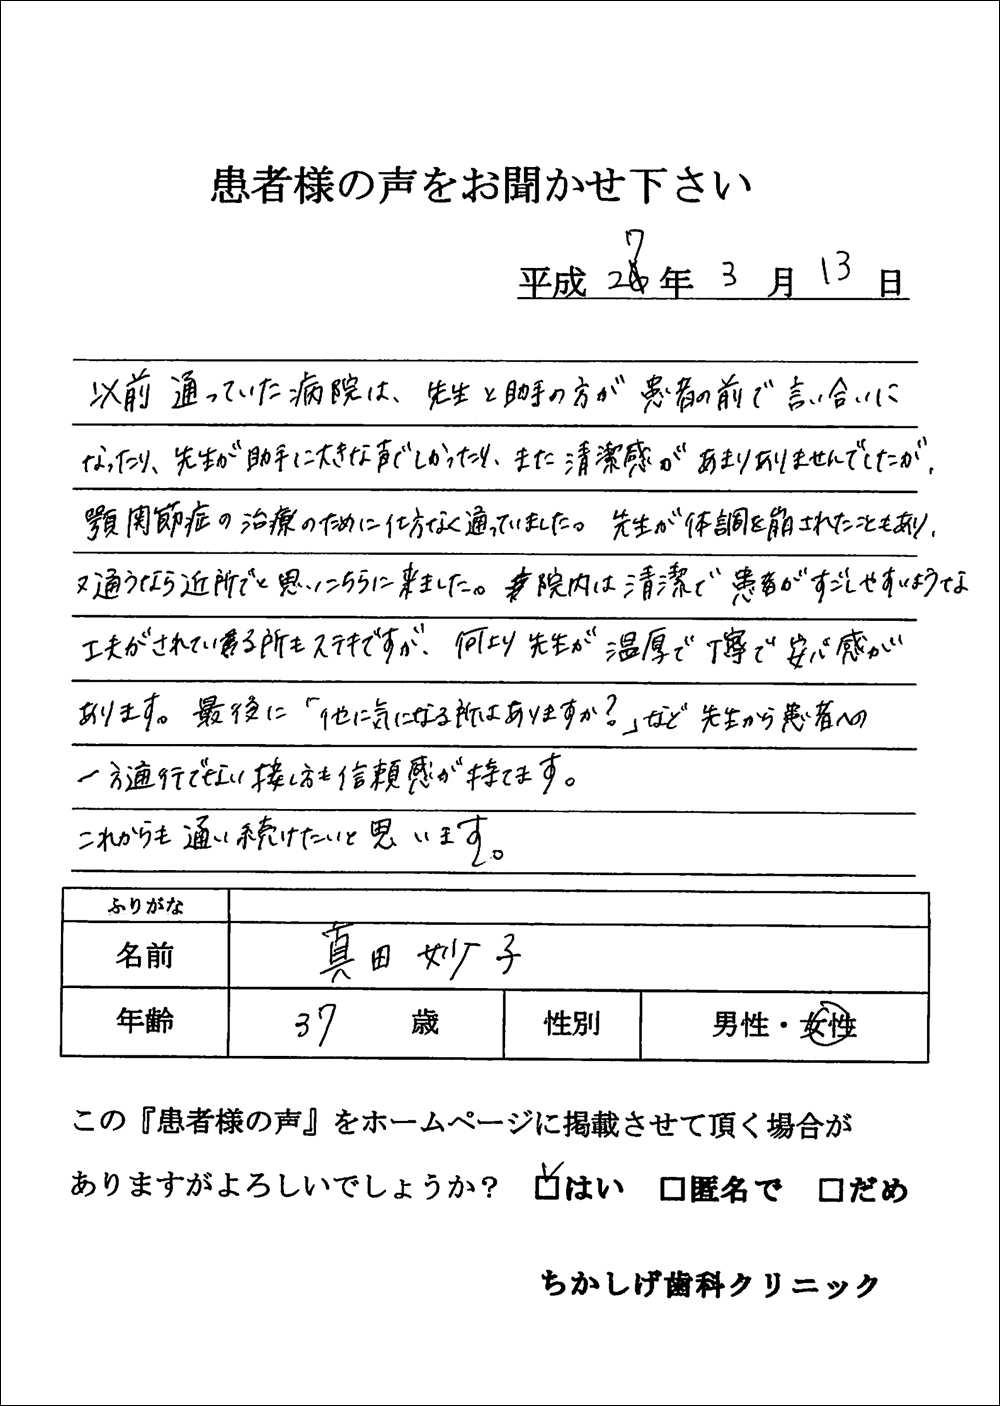 患者様の声をお聞かせ下さい
平成 27 年 3 月 13 日
以前 通っていた 病院は、先生と助手の方が 患者の前で 言い合いに
なったり、先生が助手に大きな声でしかったり、また 清潔感が あまりありませんでしたが、
顎関節症の治療のために仕方なく通っていました。先生が体調を崩されたこともあり、
又通うなら近所でと思いこちらに来ました。院内は清潔で 患者がすごしやすいような
工夫がされている所もステキですが、何より 先生が 温厚で丁寧で 安心感が
あります。最後に「他に気になる所はありますか?」など 先生から患者への
一方通行でない接し方も信頼感が持てます。
これからも通い続けたいと思います。
ふりがな
名前 真田 妙子
年齢 37 歳 性別 男性・女性
この『患者様の声』をホームページに掲載させて頂く場合が
ありますがよろしいでしょうか? ☑はい □匿名で □だめ
ちかしげ歯科クリニック